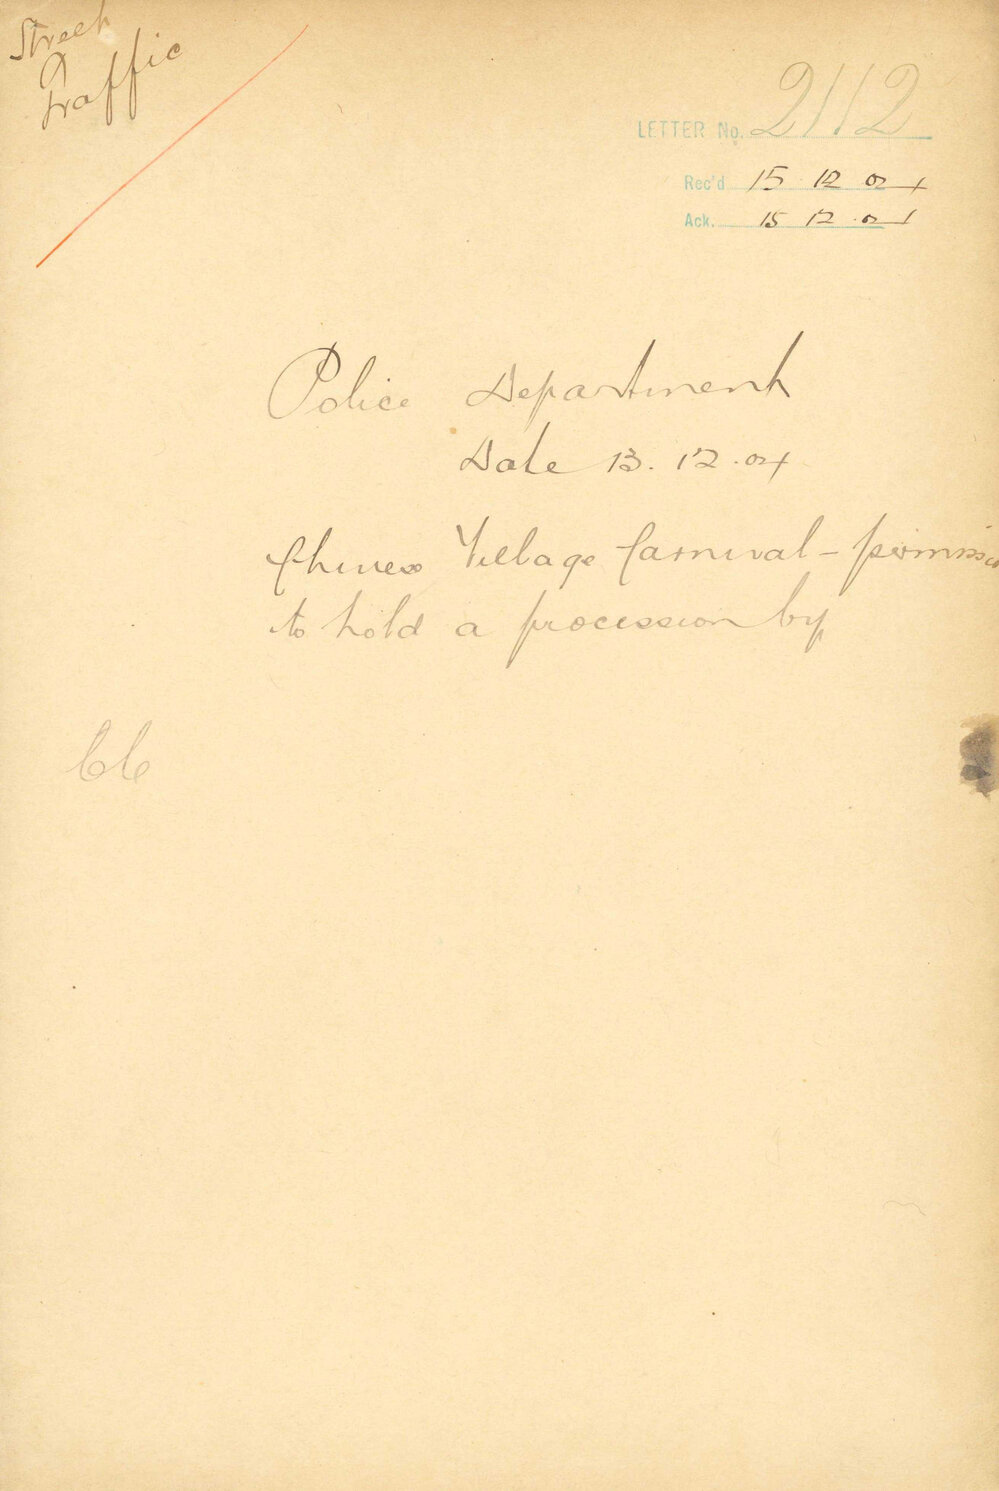 Street
Traffic
LETTER No. 2112
Rec'd 15 12 04
Ack. 15 12.04
Police Department
Date 13.12.04
Chinese Village Carnival - permissio
to hold a procession by